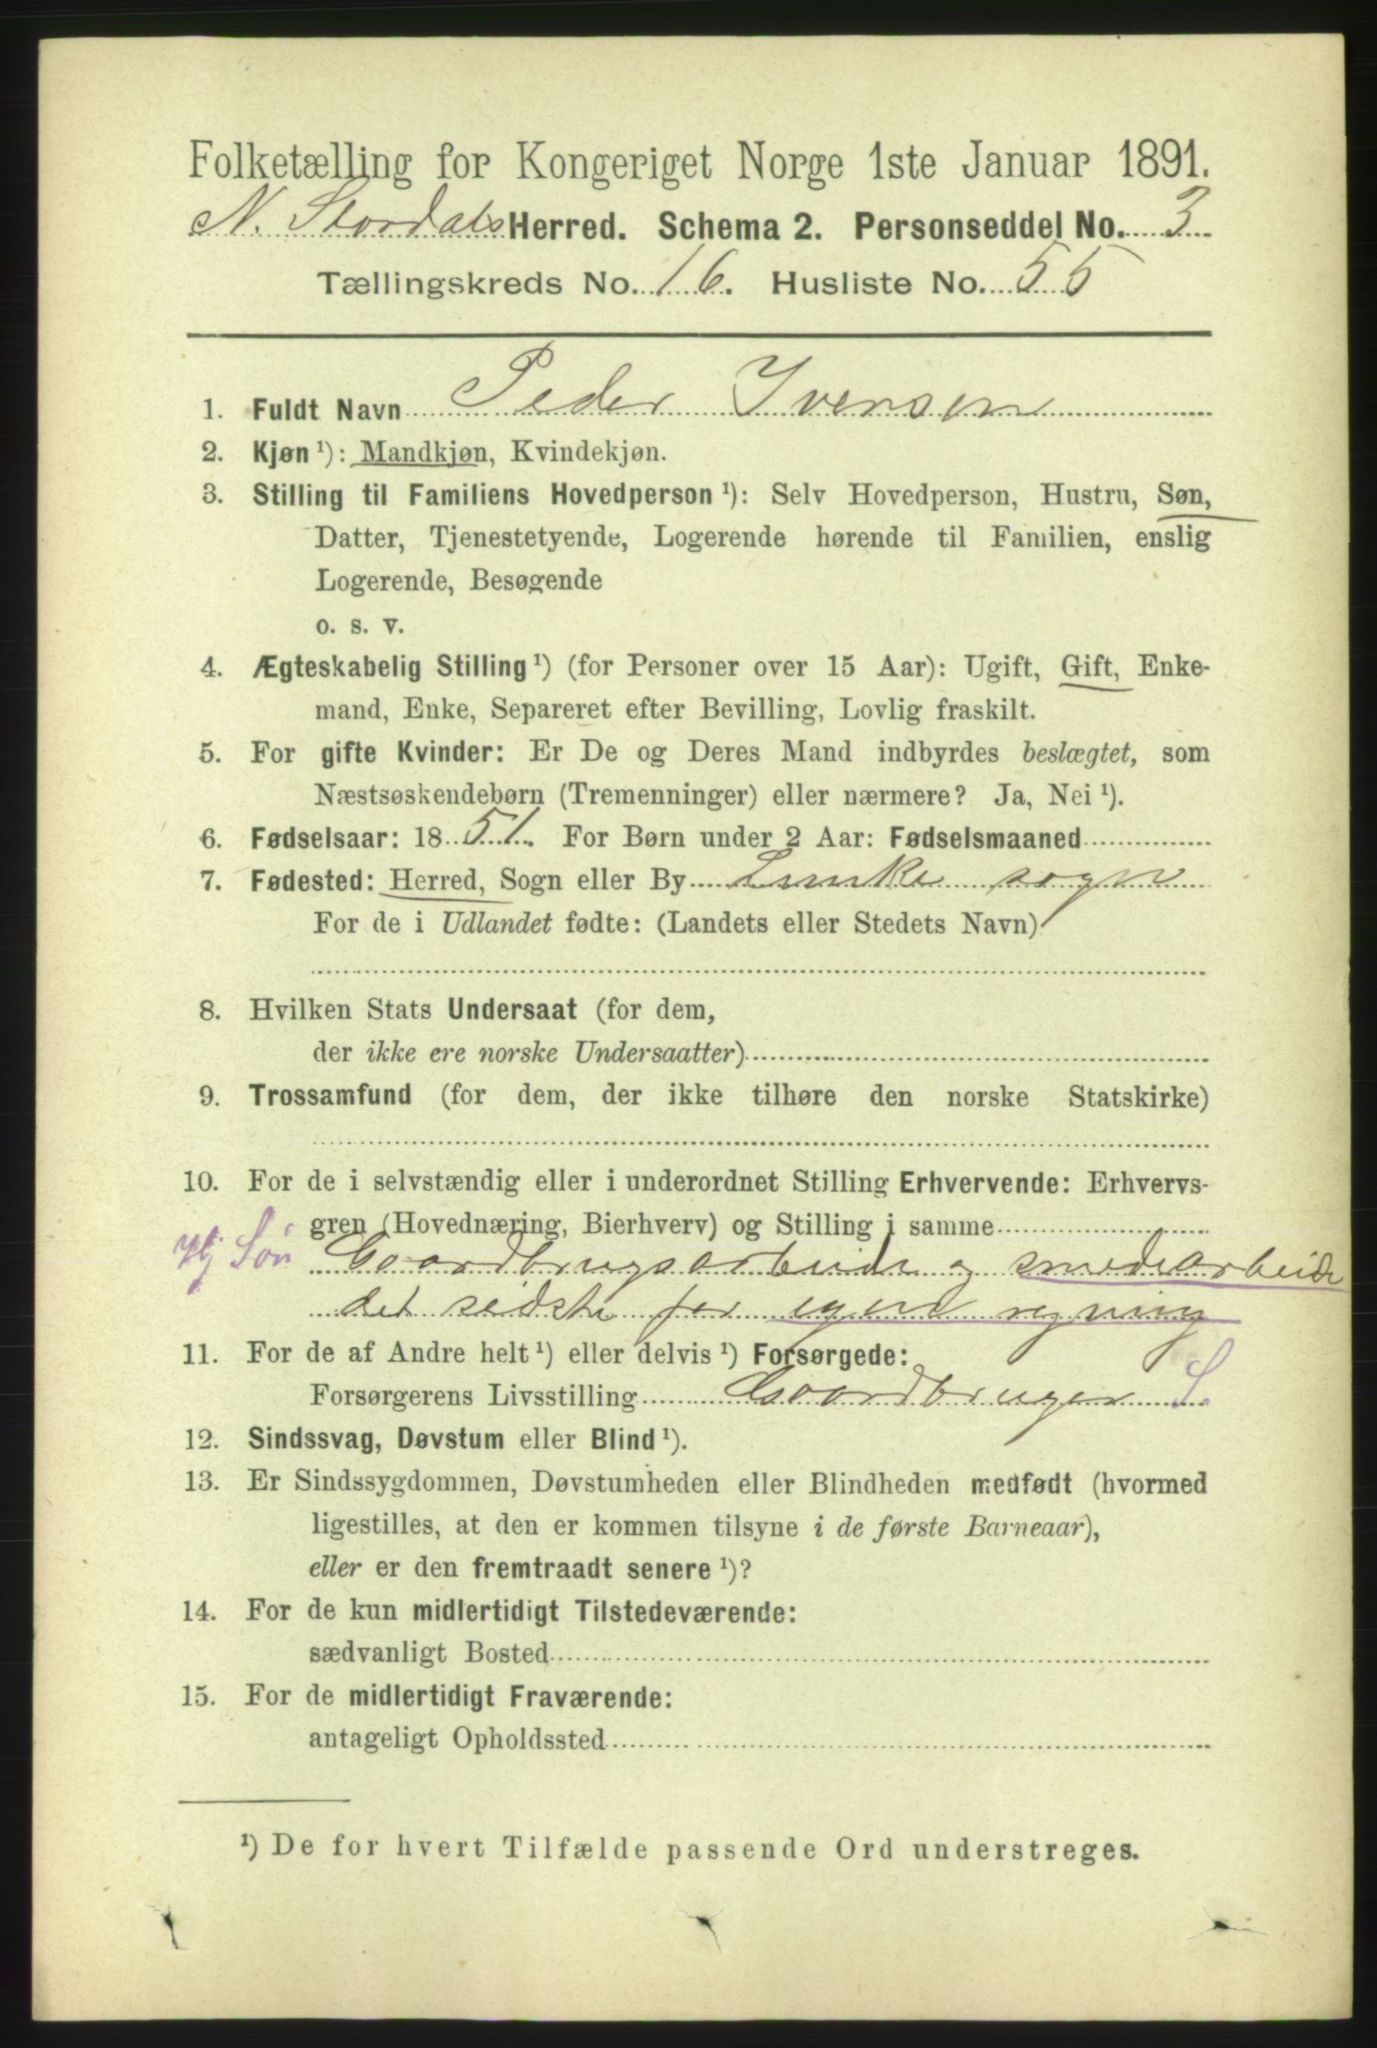 Folketælling for Kongeriget Norge 1ste Januar 1891.
N. Stordals Herred. Schema 2. Personseddel No. 3
Tællingskreds No. 16. Husliste No. 55
1. Fuldt Navn Peder Iversen
2. Kjøn ¹): Mandkjøn, Kvindekjøn.
3. Stilling til Familiens Hovedperson ¹): Selv Hovedperson, Hustru, Søn,
Datter, Tjenestetyende, Logerende hørende til Familien, enslig
Logerende, Besøgende
o. s. v.
4. Ægteskabelig Stilling ¹) (for Personer over 15 Aar): Ugift, Gift, Enke-
mand, Enke, Separeret efter Bevilling, Lovlig fraskilt.
5. For gifte Kvinder: Er De og Deres Mand indbyrdes beslægtet, som
Næstsøskendebørn (Tremenninger) eller nærmere? Ja, Nei ¹).
6. Fødselsaar: 1851. For Børn under 2 Aar: Fødselsmaaned
7. Fødested: Herred, Sogn eller By Lunke sogn
For de i Udlandet fødte: (Landets eller Stedets Navn)
8. Hvilken Stats Undersaat (for dem,
der ikke ere norske Undersaatter)
9. Trossamfund (for dem, der ikke tilhøre den norske Statskirke)
10. For de i selvstændig eller i underordnet Stilling Erhvervende: Erhvervs-
gren (Hovednæring, Bierhverv) og Stilling i samme
Hj Søn Gaardbrugsarbeide og smedearbeide
det sidste for egen regning
11. For de af Andre helt ¹) eller delvis ¹) Forsørgede:
Forsørgerens Livsstilling Gaardbruger S.
12. Sindssvag, Døvstum eller Blind ¹).
13. Er Sindssygdommen, Døvstumheden eller Blindheden medfødt (hvormed
ligestilles, at den er kommen tilsyne i de første Barneaar),
eller er den fremtraadt senere ¹)?
14. For de kun midlertidigt Tilstedeværende:
sædvanligt Bosted
15. For de midlertidigt Fraværende:
antageligt Opholdssted
¹) De for hvert Tilfælde passende Ord understreges.